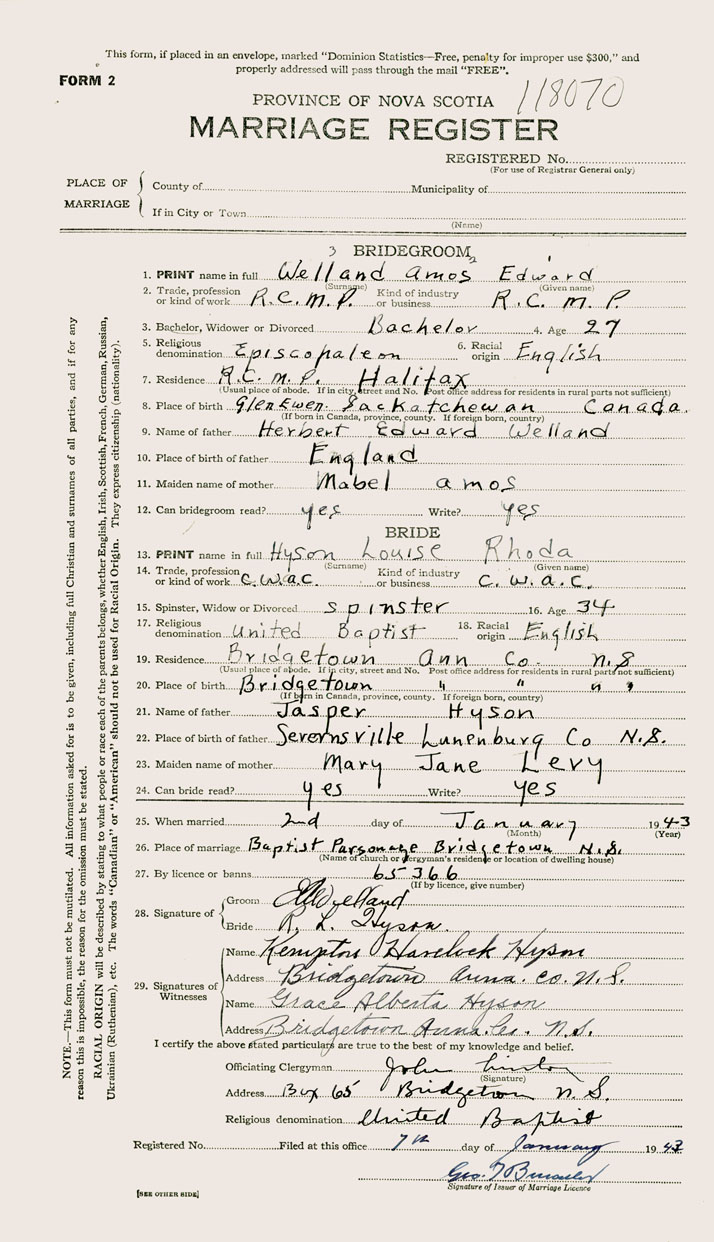 This form, if placed in an envelope, marked "Dominion Statistics—Free, penalty for improper use $300," and
properly addressed will pass through the mail "FREE".
FORM 2
118070
PROVINCE OF NOVA SCOTIA
MARRIAGE REGISTER
REGISTERED No.
(For use of Registrar General only)
PLACE OF MARRIAGE
County of Municipality of
If in City or Town
(Name)
3 BRIDEGROOM 2
1. PRINT name in full Welland Amos Edward
(Surname) (Given name)
2. Trade, profession or kind of work R.C.M.P. Kind of industry or business R.C.M.P.
3. Bachelor, Widower or Divorced Bachelor 4. Age 27
5. Religious denomination Episcopaleon 6. Racial origin English
7. Residence R.C.M.P. Halifax
(Usual place of abode. If in city, street and No. Post office address for residents in rural parts not sufficient)
8. Place of birth Glen Ewen Sackatchewan Canada.
(If born in Canada, province, county. If foreign born, country)
9. Name of father Herbert Edward Welland
10. Place of birth of father England
11. Maiden name of mother Mabel amos
12. Can bridegroom read? yes Write? yes
BRIDE
13. PRINT name in full Hyson Louise Rhoda
(Surname) (Given name)
14. Trade, profession or kind of work C.W.A.C. Kind of industry or business C.W.A.C.
15. Spinster, Widow or Divorced spinster 16. Age 34
17. Religious denomination United Baptist 18. Racial origin English
19. Residence Bridgetown Ann Co. N.S
(Usual place of abode. If in city, street and No. Post office address for residents in rural parts not sufficient)
20. Place of birth Bridgetown " " "
(If born in Canada, province, county. If foreign born, country)
21. Name of father Jasper Hyson
22. Place of birth of father Severnsville Lunenburg Co N.S.
23. Maiden name of mother Mary Jane Levy
24. Can bride read? yes Write? yes
25. When married 2nd day of January 1943
(Month) (Year)
26. Place of marriage Baptist Parsonage Bridgetown N.S.
(Name of church or clergyman's residence or location of dwelling house)
27. By licence or banns 65366
(If by licence, give number)
28. Signature of
Groom Welland
Bride R. L. Hyson.
29. Signatures of Witnesses
Name Kempton Havelock Hyson
Address Bridgetown Anna. Co. N.S.
Name Grace Alberta Hyson
Address Bridgetown Anna. Co. N.S.
I certify the above stated particulars are true to the best of my knowledge and belief.
Officiating Clergyman John Linton
(Signature)
Address Box 65 Bridgetown N.S.
Religious denomination United Baptist
Registered No. Filed at this office 7th day of January 1943
Geo.
Signature of Issuer of Marriage Licence
[SEE OTHER SIDE]
NOTE.—This form must not be mutilated. All information asked for is to be given, including full Christian and surnames of all parties, and if for any
reason this is impossible, the reason for the omission must be stated.
RACIAL ORIGIN will be described by stating to what people or race each of the parents belongs, whether English, Irish, Scottish, French, German, Russian,
Ukrainian (Ruthenian), etc. The words "Canadian" or "American" should not be used for Racial Origin. They express citizenship (nationality).